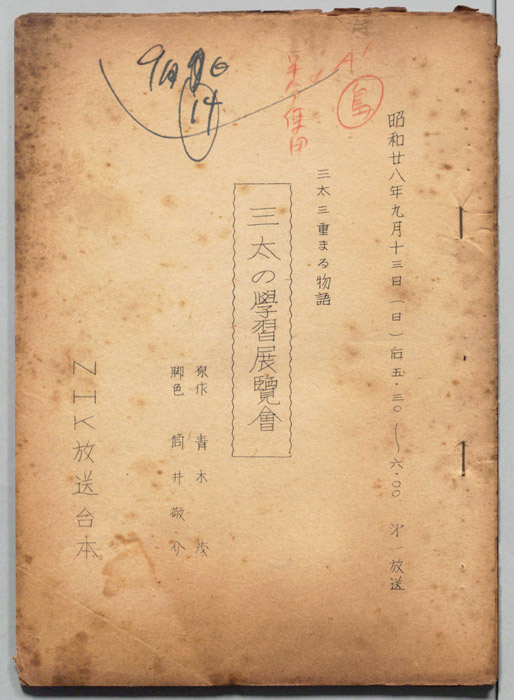 昭和廿八年九月十三日(日)后五・三〇〜六・〇〇 第一放送
三太三重まる物語
三太の學習展覽會
原作 青木茂
脚色 筒井敬介
NHK放送台本
14
A'
島